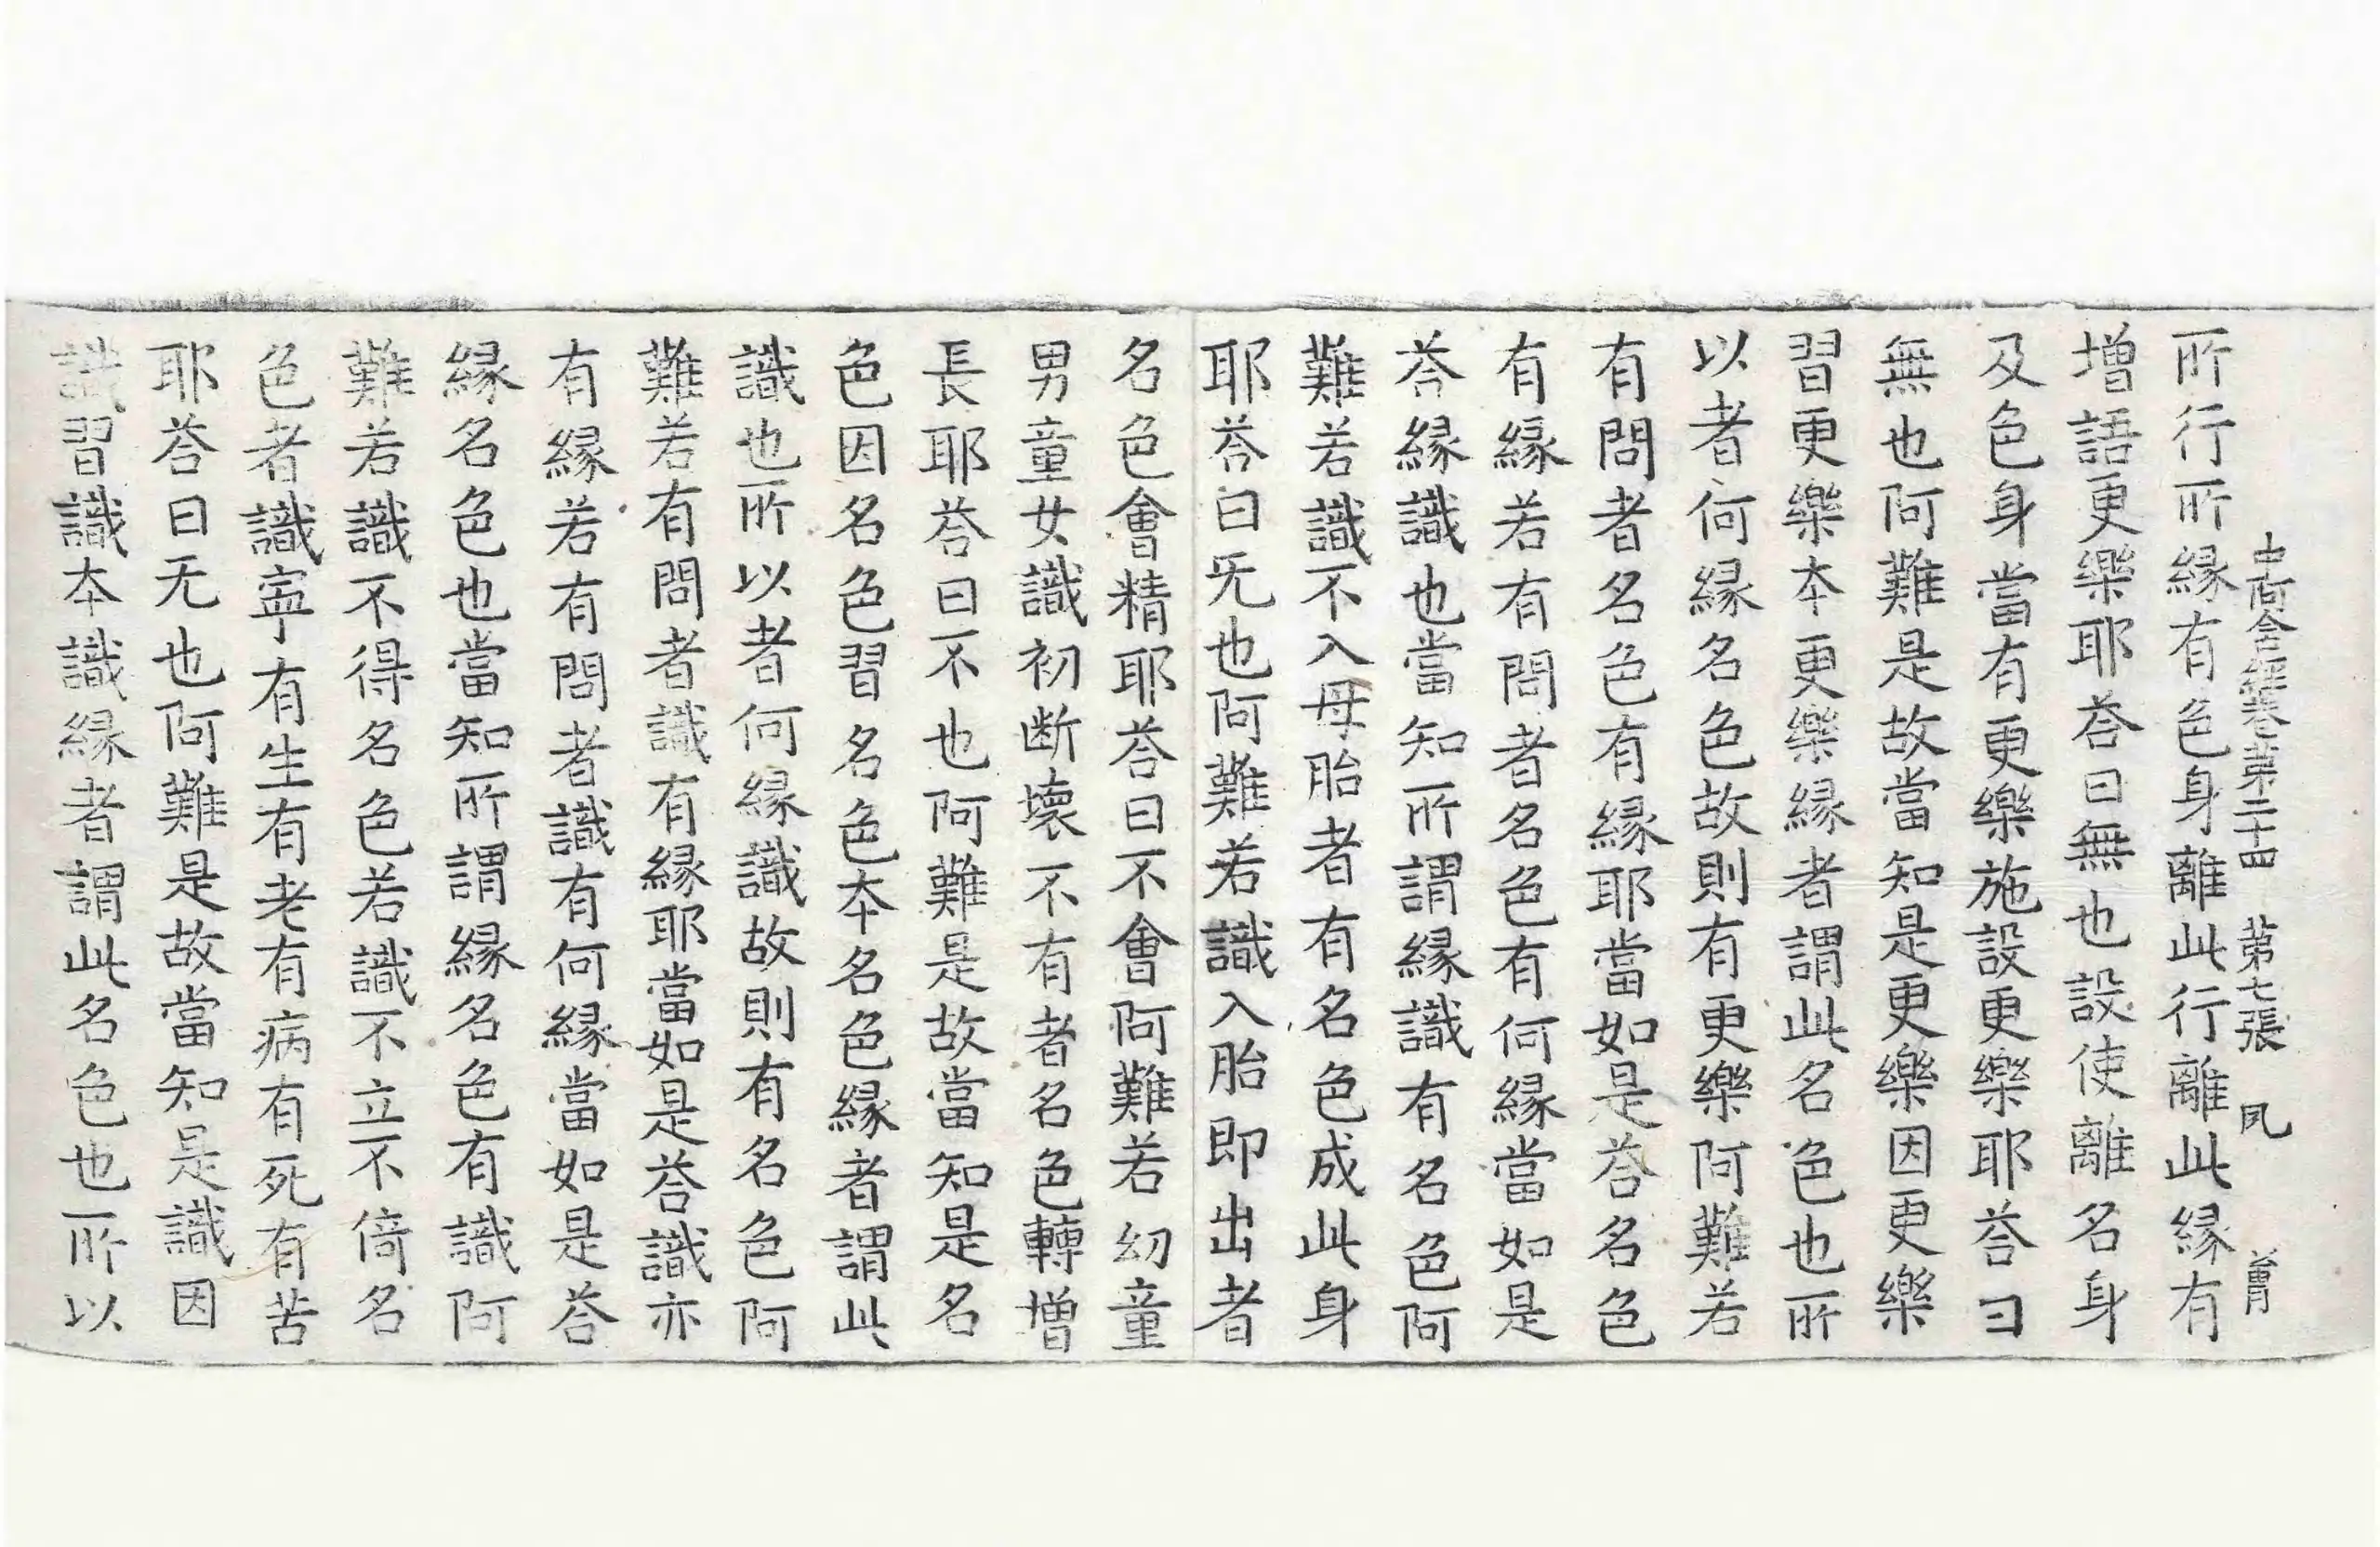 中阿含經卷第二十四 第七張 夙
所行所縁有色身離此行離此縁有
增語更樂耶荅曰無也設使離名身
及色身當有更樂施設更樂耶荅曰
無也阿難是故當知是更樂因更樂
習更樂本更樂縁者謂此名色也所
以者何縁名色故則有更樂阿難若
有問者名色有縁耶當如是荅名色
有縁若有問者名色有何縁當如是
荅縁識也當知所謂縁識有名色阿
難若識不入母胎者有名色成此身
耶荅曰旡也阿難若識入胎即出者
名色會精耶荅曰不會阿難若幼童
男童女識初断壞不有者名色轉增
長耶荅曰不也阿難是故當知是名
色因名色習名色本名色縁者謂此
識也所以者何縁識故則有名色阿
難若有問者識有縁耶當如是荅識亦
有縁若有問者識有何縁當如是荅
縁名色也當知所謂縁名色有識阿
難若識不得名色若識不立不倚名
色者識寧有生有老有病有死有苦
耶荅曰无也阿難是故當知是識因
識習識本識縁者謂此名色也所以